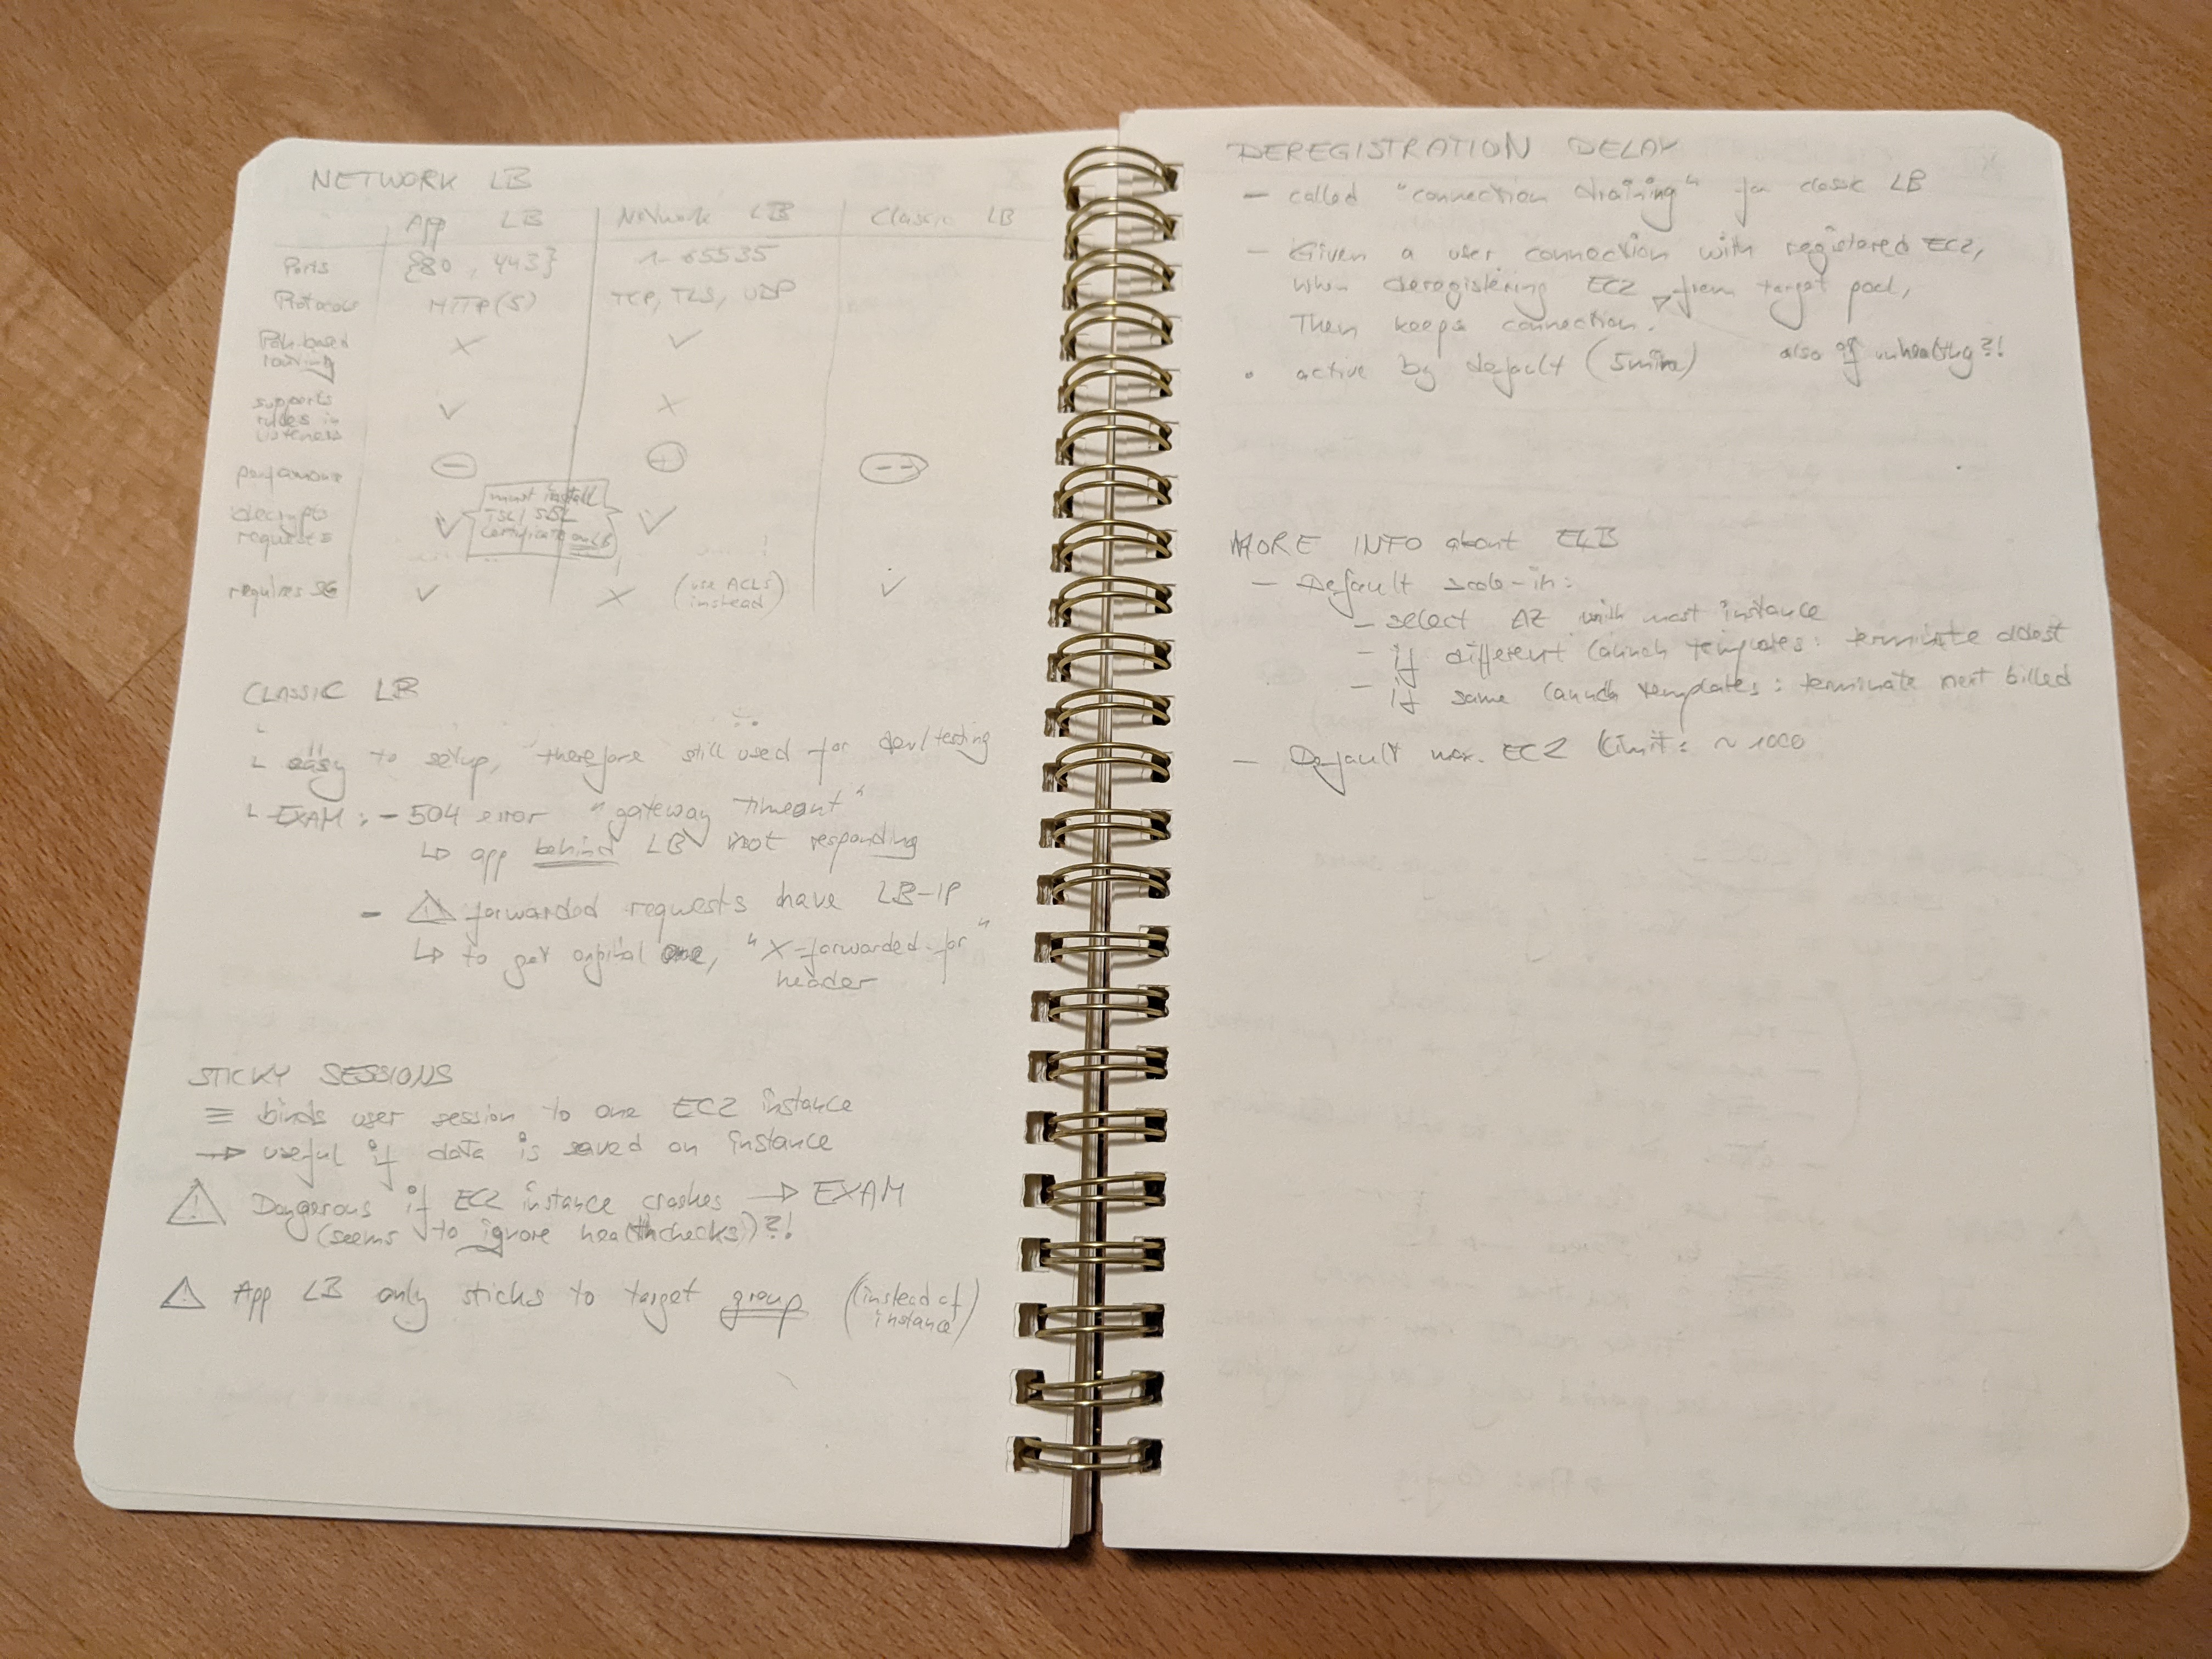 NETWORK LB
App LB Network LB Classic LB
Ports {80, 443} 1-65535
Protocols HTTP(S) TCP, TLS, UDP
Path-based
routing ✗ ✓
supports
rules in
listeners ✓ ✗
performance ⊖ ⊕ (--)
decrypts
requests ✓ ✓
must install
TSL/SSL
certificate on LB
requires SG ✓ ✗ (use ACLs
instead) ✓
CLASSIC LB
easy to setup, therefore still used for dev/testing
EXAM: - 504 error "gateway timeout"
↳ app behind LB not responding
- ⚠ forwarded requests have LB-IP
↳ to get orginal one, "X-forwarded-for"
header
STICKY SESSIONS
≡ binds user session to one EC2 instance
→ useful if data is saved on instance
⚠ Dangerous if EC2 instance crashes → EXAM
(seems to ignore healthchecks)?!
⚠ App LB only sticks to target group (instead of
instance)
DEREGISTRATION DELAY
- called "connection draining" for classic LB
- Given a user connection with registered EC2,
when deregistering EC2 from target pool,
Then keeps connection.
also if unhealthy?!
• active by default (5min)
MORE INFO about ELB
- Default scale-in:
- select AZ with most instance
- if different launch templates: terminate oldest
- if same launch templates: terminate next billed
- Default max. EC2 limit: ~ 1000